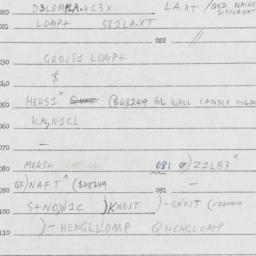 020 D3LOMPLA.XC3X LA.XT / GEO NAIVE DIFFERENT
LOMP+ G81LA.XT
030 022 //
GROJS1 LOMP+
040 $
050 HE4S1* ($48249 GL WALL CANDLE HOLD
060 KA,N1CL
070 —
080 ME4S+ 081 @)Z1LB3*
090 GF)NAFT* ($48249 091 —
100 S+NO,W1C )KNOST )-GNOST
110 )-HENGLLOMP @HENGLOMP